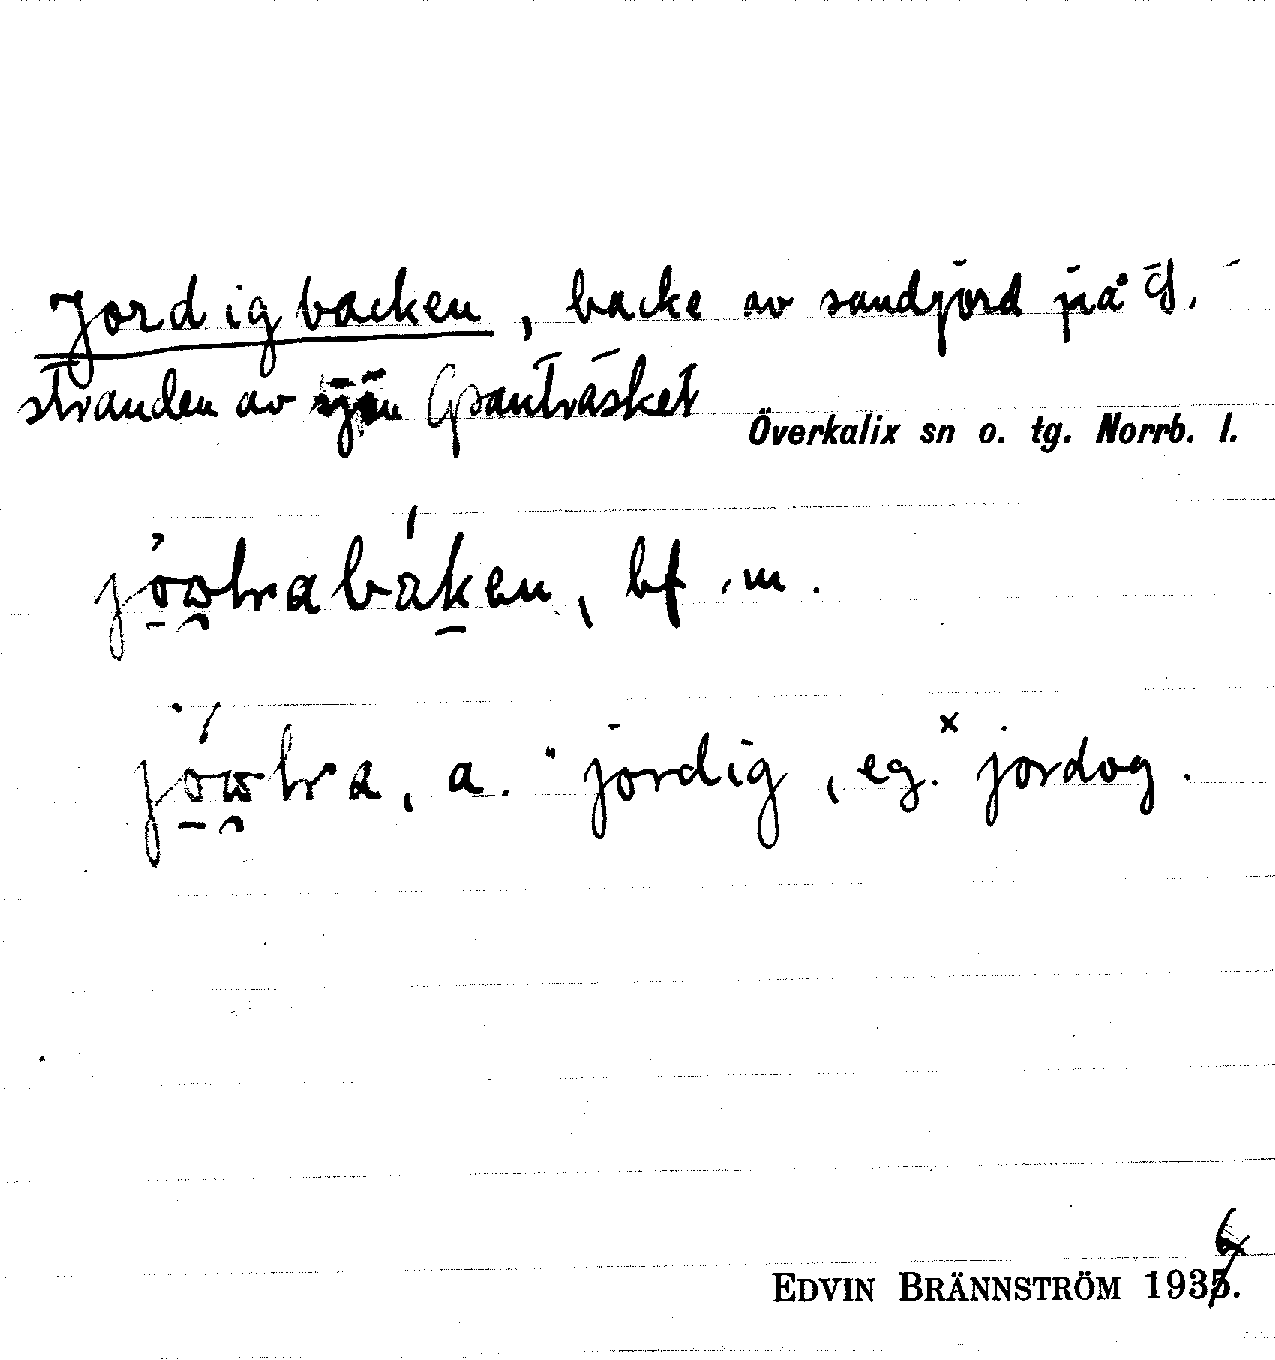 Jordigbacken, backe av sandjord på Ö.
stranden av sjön Gpanträsket
Överkalix sn o. tg. Norrb. l.
bf. m.
a. "jordig, eg. ˣjordog.
6
EDVIN BRÄNNSTRÖM 1935.